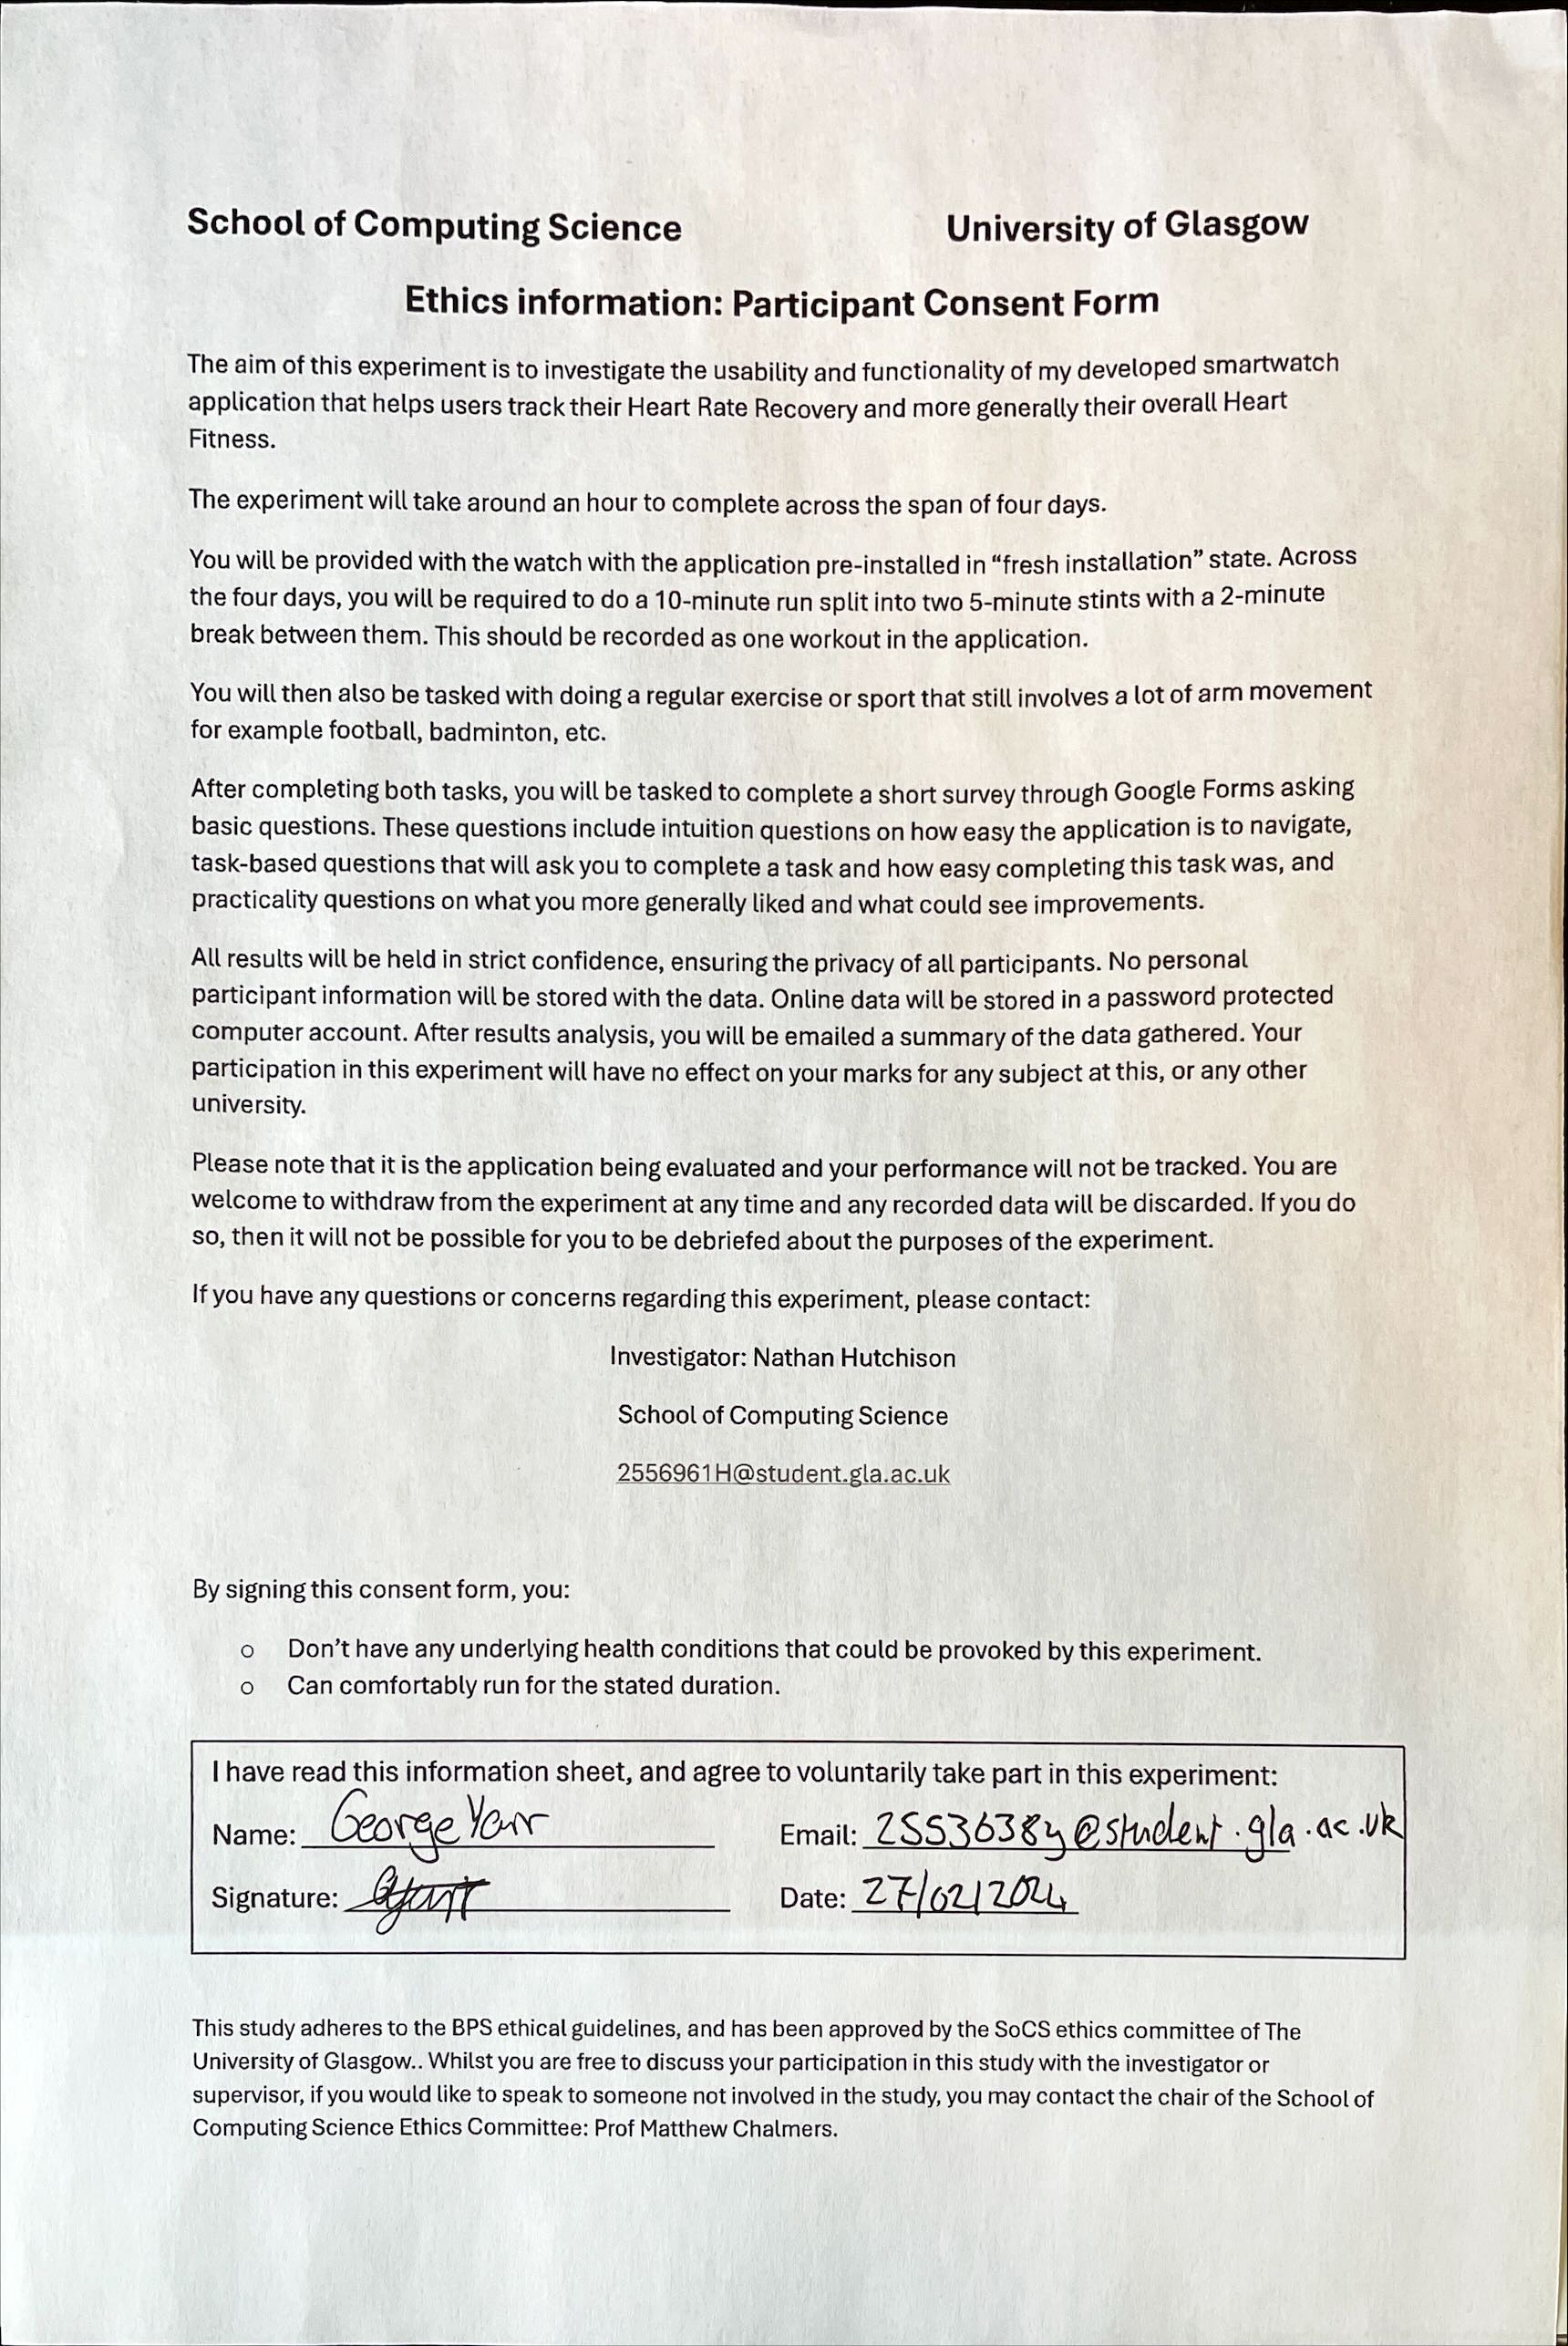 School of Computing Science University of Glasgow
Ethics information: Participant Consent Form
The aim of this experiment is to investigate the usability and functionality of my developed smartwatch
application that helps users track their Heart Rate Recovery and more generally their overall Heart
Fitness.
The experiment will take around an hour to complete across the span of four days.
You will be provided with the watch with the application pre-installed in “fresh installation” state. Across
the four days, you will be required to do a 10-minute run split into two 5-minute stints with a 2-minute
break between them. This should be recorded as one workout in the application.
You will then also be tasked with doing a regular exercise or sport that still involves a lot of arm movement
for example football, badminton, etc.
After completing both tasks, you will be tasked to complete a short survey through Google Forms asking
basic questions. These questions include intuition questions on how easy the application is to navigate,
task-based questions that will ask you to complete a task and how easy completing this task was, and
practicality questions on what you more generally liked and what could see improvements.
All results will be held in strict confidence, ensuring the privacy of all participants. No personal
participant information will be stored with the data. Online data will be stored in a password protected
computer account. After results analysis, you will be emailed a summary of the data gathered. Your
participation in this experiment will have no effect on your marks for any subject at this, or any other
university.
Please note that it is the application being evaluated and your performance will not be tracked. You are
welcome to withdraw from the experiment at any time and any recorded data will be discarded. If you do
so, then it will not be possible for you to be debriefed about the purposes of the experiment.
If you have any questions or concerns regarding this experiment, please contact:
Investigator: Nathan Hutchison
School of Computing Science
2556961H@student.gla.ac.uk
By signing this consent form, you:
o Don’t have any underlying health conditions that could be provoked by this experiment.
o Can comfortably run for the stated duration.
I have read this information sheet, and agree to voluntarily take part in this experiment:
Name: George Yarr Email: 2553638y@student.gla.ac.uk
Signature: Date: 27/02/2024
This study adheres to the BPS ethical guidelines, and has been approved by the SoCS ethics committee of The
University of Glasgow.. Whilst you are free to discuss your participation in this study with the investigator or
supervisor, if you would like to speak to someone not involved in the study, you may contact the chair of the School of
Computing Science Ethics Committee: Prof Matthew Chalmers.